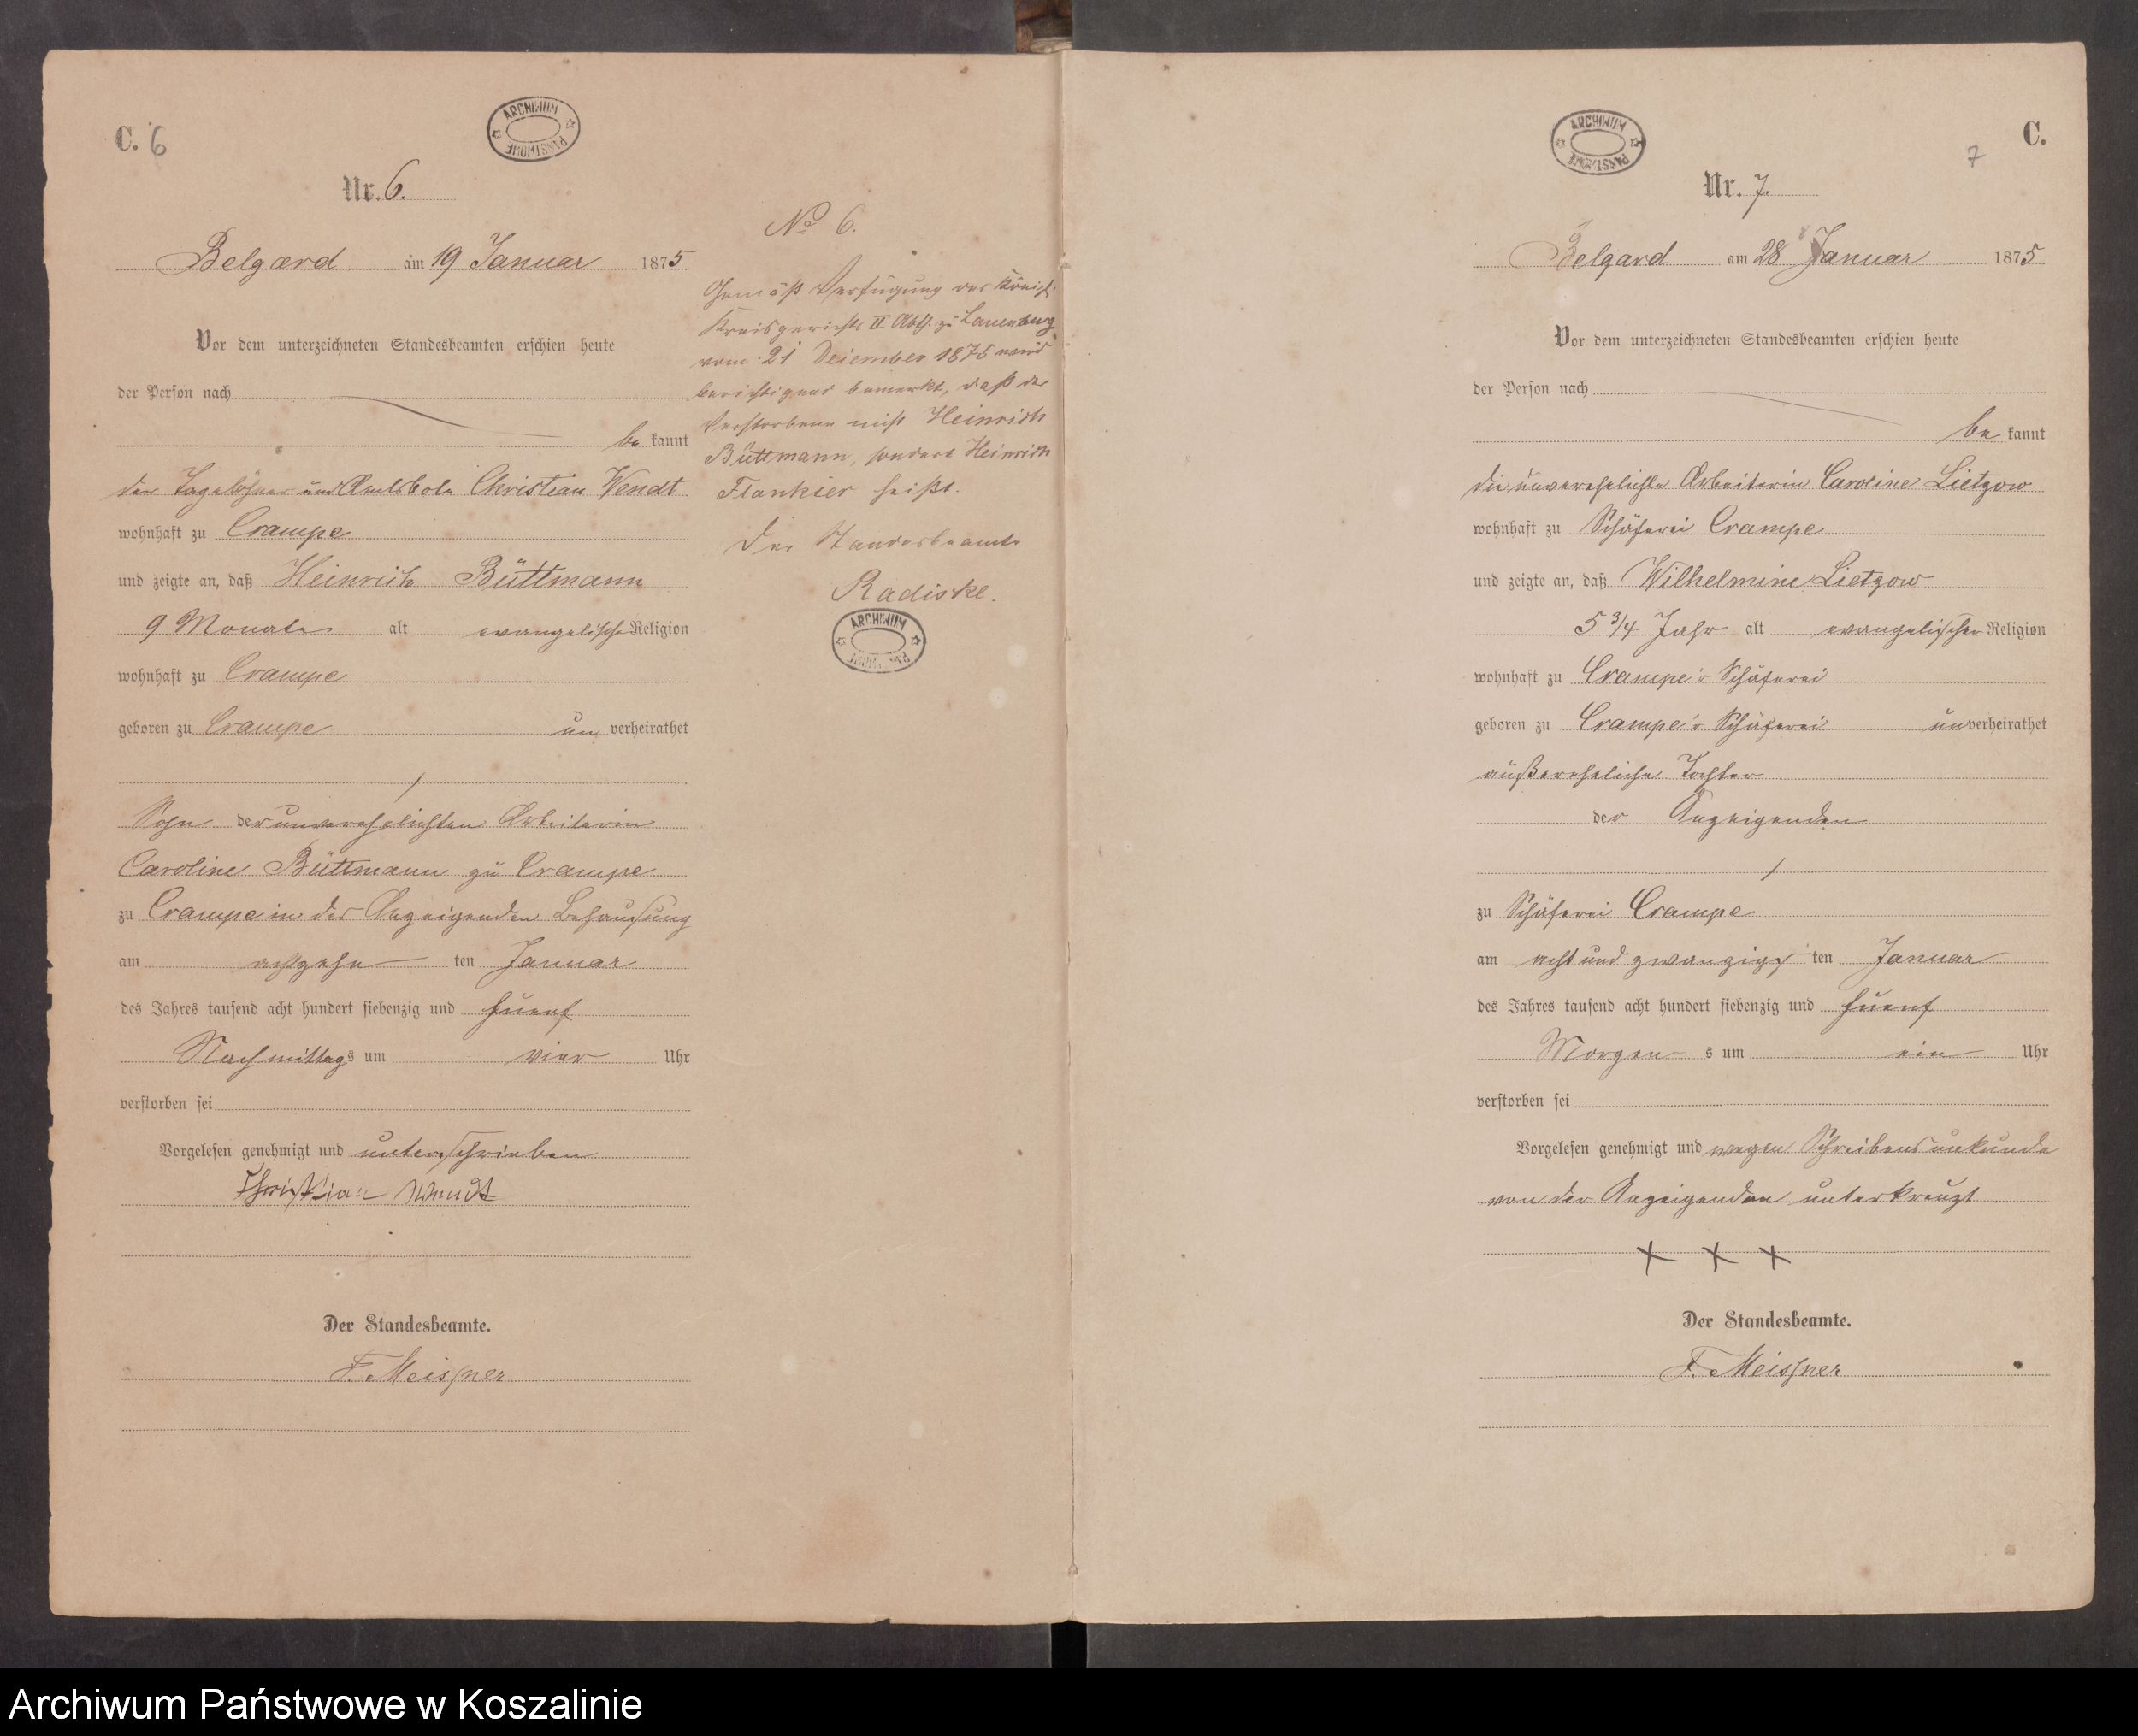 C. 6
ARCHIWUM PAŃSTWOWE
Nr. 6.
Belgard am 19 Januar 1875
Vor dem unterzeichneten Standesbeamten erschien heute
der Person nach
be kannt
der Tagelöhner und Amtsbote Christian Wendt
wohnhaft zu Crampe
und zeigte an, daß Heinrich Büttmann
9 Monate alt evangelischer Religion
wohnhaft zu Crampe
geboren zu Crampe un verheirathet
Sohn der unverehelichten Arbeiterin
Caroline Büttmann zu Crampe
zu Crampe in des Anzeigenden Behausung
am achtzehn ten Januar
des Jahres tausend acht hundert siebenzig und fuenf
Nachmittags um vier Uhr
verstorben sei
Vorgelesen genehmigt und unterschrieben
Christian Wendt
Der Standesbeamte.
F. Meissner
No 6.
Gemäß Verfügung des Königl.
Kreisgerichts II Abth. zu Lauenburg
vom 21 Dezember 1875 wird
berichtigend bemerkt, daß der
Verstorbene nicht Heinrich
Büttmann, sondern Heinrich
Flankier heißt.
Der Standesbeamte
Radiske.
ARCHIWUM PAŃSTWOWE
ARCHIWUM PAŃSTWOWE
C.
7
Nr. 7.
Belgard am 28 Januar 1875
Vor dem unterzeichneten Standesbeamten erschien heute
der Person nach
be kannt
die unverehelichte Arbeiterin Caroline Lietzow
wohnhaft zu Schäferei Crampe
und zeigte an, daß Wilhelmine Lietzow
5 3/4 Jahr alt evangelischer Religion
wohnhaft zu Crampe'r Schäferei
geboren zu Crampe'r Schäferei unverheirathet
außereheliche Tochter
der Anzeigenden
zu Schäferei Crampe
am acht und zwanzigs ten Januar
des Jahres tausend acht hundert siebenzig und fuenf
Morgen s um ein Uhr
verstorben sei
Vorgelesen genehmigt und wegen Schreibensunkunde
von der Anzeigenden unterkreuzt
+ + +
Der Standesbeamte.
F. Meissner
Archiwum Państwowe w Koszalinie